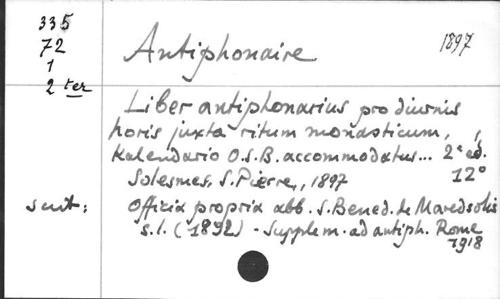 335
72
1
2 ter
Antiphonaire
1897
Liber antiphonarius pro diurnis
horis juxta ritum monasticum,
Kalendario O.S.B. accommodatus... 2ª ed.
Solesmes, S. Pierre, 1897 12°
sunt: Officia propria abb. S. Bened. de Maredsolis
s.l. (1892) - Supplem. ad antiph. Rome
1918